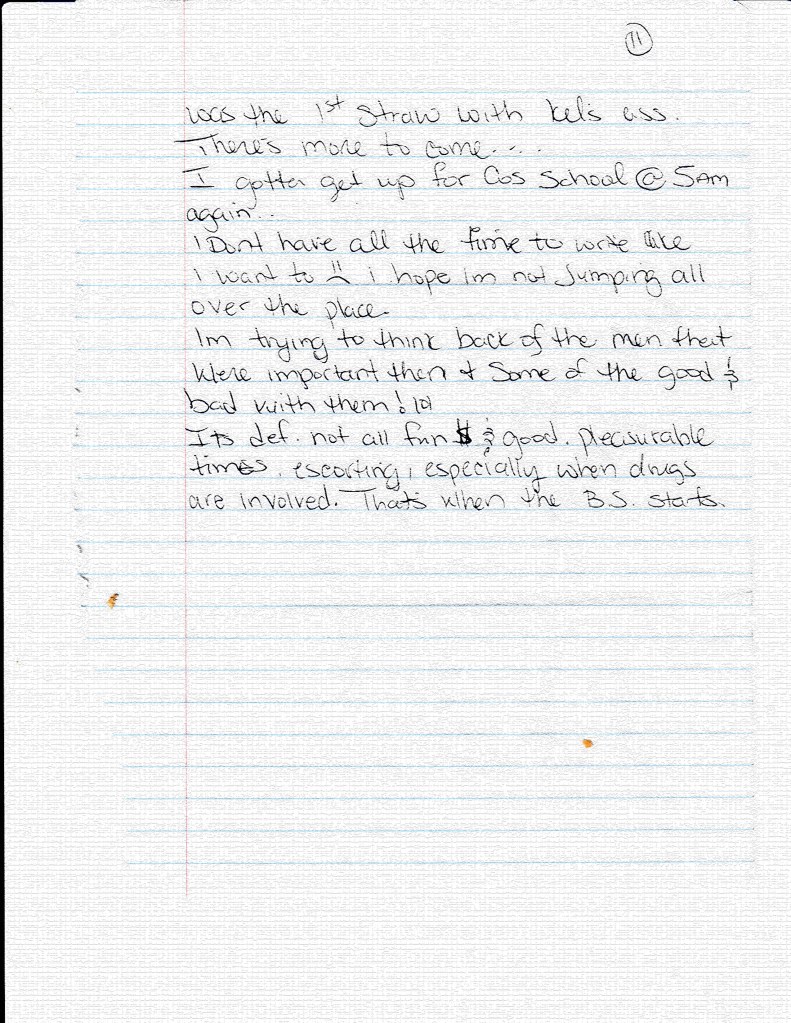 11
was the 1st straw with Kel's ass.
There's more to come....
I gotta get up for Cos School @ 5AM
again...
I Dont have all the time to write like
I want to i hope im not Jumping all
over the place.
Im trying to think back of the men that
Were important then & Some of the good &
bad with them! lol
Its def. not all fun $ & good. pleasurable
times. escorting, especially when drugs
are involved. Thats when the B.S. starts.